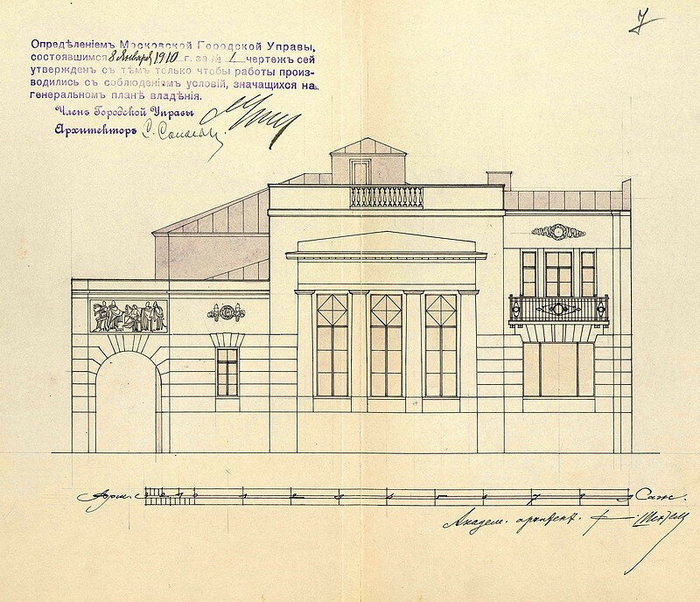 7
Опредѣленіемъ Московской Городской Управы,
состоявшимся 8 Января 1910 г. за № 1 чертежъ сей
утвержденъ съ тѣмъ только чтобы работы произ-
водились съ соблюденіемъ условій, значащихся на
генеральномъ планѣ владѣнія.
Членъ Городской Управы
Архитекторъ
Арш. Саж.
Академ. архитект. Ф. Шехтель